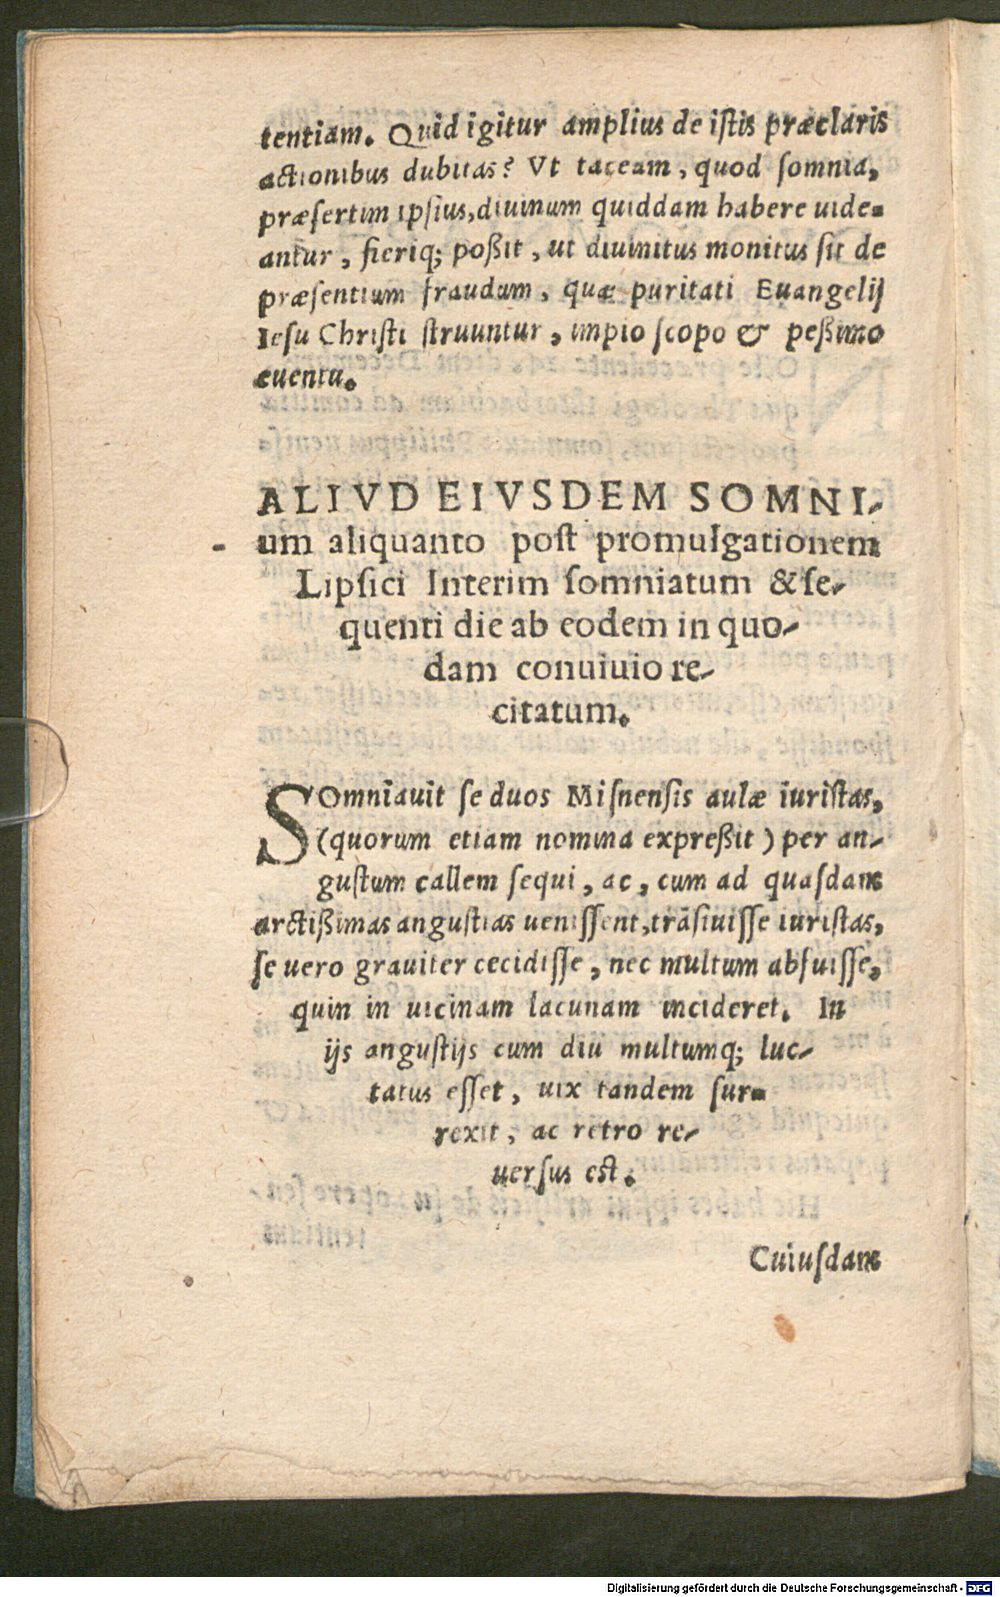 tentiam. Quid igitur amplius de istis præclaris
actionibus dubitas? Vt taceam, quod somnia,
præsertim ipsius, diuinum quiddam habere uide-
antur, fieriq; poßit, ut diuinitus monitus sit de
præsentium fraudum, quæ puritati Euangelij
Iesu Christi struuntur, impio scopo & peßimo
euentu.
ALIVD EIVSDEM SOMNI-
um aliquanto post promulgationem
Lipsici Interim somniatum & se-
quenti die ab eodem in quo-
dam conuiuio re-
citatum.
SOmniauit se duos Misnensis aulæ iuristas,
(quorum etiam nomina expreßit) per an-
gustum callem sequi, ac, cum ad quasdam
arctißimas angustias uenissent, trãsiuisse iuristas,
se uero grauiter cecidisse, nec multum abfuisse,
quin in uicinam lacunam incideret. In
ijs angustijs cum diu multumq; luc-
tatus esset, uix tandem sur-
rexit, ac retro re-
uersus est.
Cuiusdam
Digitalisierung gefördert durch die Deutsche Forschungsgemeinschaft - DFG